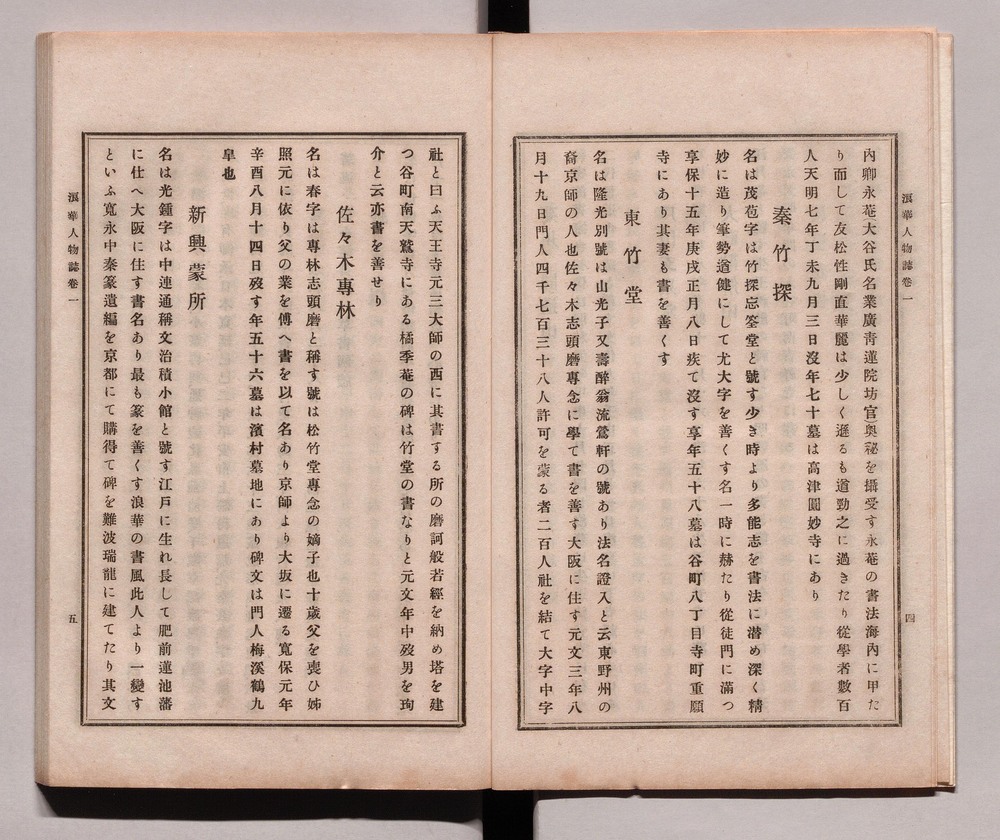 浪華人物誌卷一
內卿永菴大谷氏名業廣靑蓮院坊官奧祕を攝受す永菴の書法海內に甲た
り而して友松性剛直華麗は少しく遜るも遒勁之に過きたり從學者數百
人天明七年丁未九月三日沒年七十墓は高津圓妙寺にあり
秦竹探
名は茂苞字は竹探忘筌堂と號す少き時より多能志を書法に潜め深く精
妙に造り筆勢遒健にして尤大字を善くす名一時に赫たり從徒門に滿つ
享保十五年庚戌正月八日疾て沒す享年五十八墓は谷町八丁目寺町重願
寺にあり其妻も書を善くす
東竹堂
名は隆光別號は山光子又壽醉翁流鶯軒の號あり法名證入と云東野州の
裔京師の人也佐々木志頭磨專念に學て書を善す大阪に住す元文三年八
月十九日門人四千七百三十八人許可を蒙る者二百人社を結て大字中字
四
社と曰ふ天王寺元三大師の西に其書する所の磨訶般若經を納め塔を建
つ谷町南天鷲寺にある橘季菴の碑は竹堂の書なりと元文年中歿男を珣
介と云亦書を善せり
佐々木專林
名は春字は專林志頭磨と稱す號は松竹堂專念の嫡子也十歲父を喪ひ姊
照元に依り父の業を傳へ書を以て名あり京師より大坂に遷る寬保元年
辛酉八月十四日歿す年五十六墓は濱村墓地にあり碑文は門人梅溪鶴九
皐也
新興蒙所
名は光鍾字は中連通稱文治積小館と號す江戸に生れ長して肥前蓮池藩
に仕へ大阪に住す書名あり最も篆を善くす浪華の書風此人より一變す
といふ寬永中秦篆遺編を京都にて購得て碑を難波瑞龍に建てたり其文
浪華人物誌卷一
五